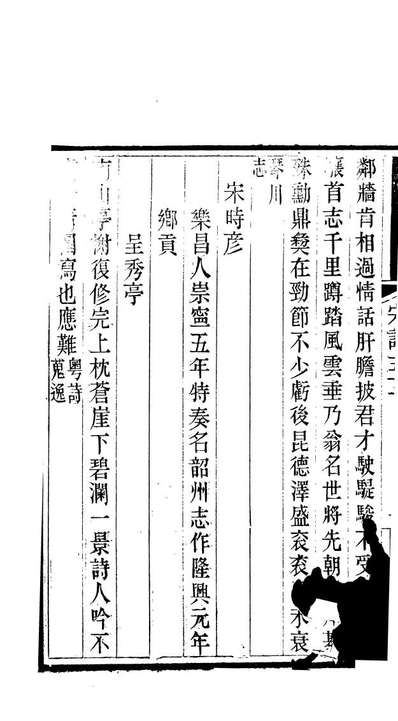 鄰牆肯相過情話肝膽披君才駛騠駿不受
首志千里蹲踏風雲垂乃翁名世將先朝
殊勳鼎彝在勁節不少虧後昆德澤盛衮衮永衰
琴川
志
宋時彥
樂昌人崇寧五年特奏名韶州志作隆興元年
鄉貢
呈秀亭
山亭謝復修完上枕蒼崖下碧瀾一景詩人吟不
寫也應難粵詩
蒐逸